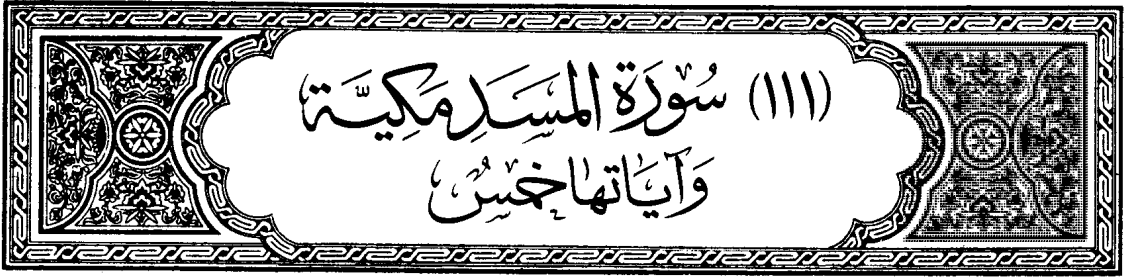 (١١١) سُورَة المَسَدِ مَكِيَّة
وَآيَاتهَا خَمْسٌ